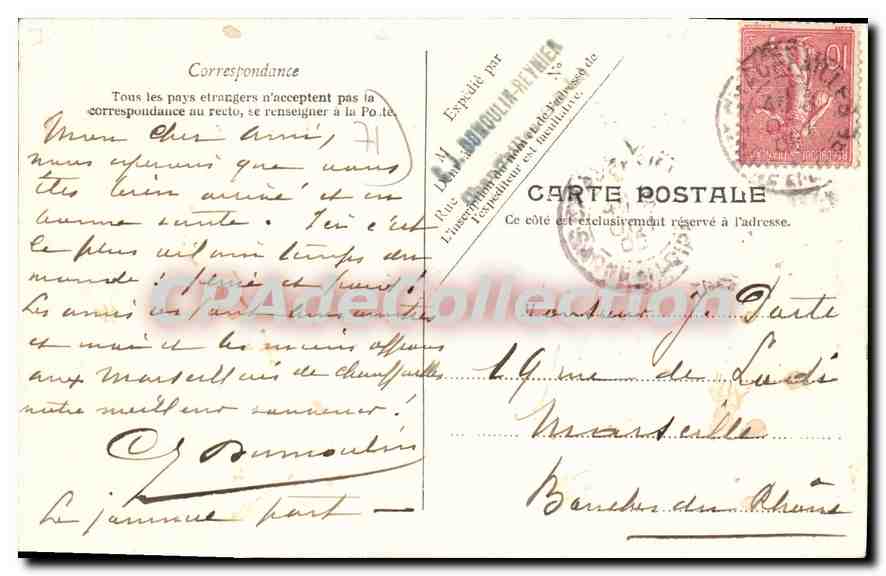 Correspondance
Tous les pays etrangers n'acceptent pas la
correspondance au recto, se renseigner à la Poste.
Mon cher ami,
nous espérons que vous
êtes bien arrivé et en
bonne santé. Ici c'est
le plus vilain temps du
monde: et froid!
Les amis
et moi et les miens offrons
aux Marseillais de Chauffailles
notre meilleur souvenir!
CJ Dumoulin
Le journal part —
Expédié par
M
C. J. DUMOULIN-REYNIER
Demeurant
Rue
N°
L'inscription du nom et de l'adresse de
l'expéditeur est facultative.
CARTE POSTALE
Ce côté est exclusivement réservé à l'adresse.
Monsieur J. Porte
19 rue de Lodi
Marseille
Bouches du Rhône
10
CPAdeCollection